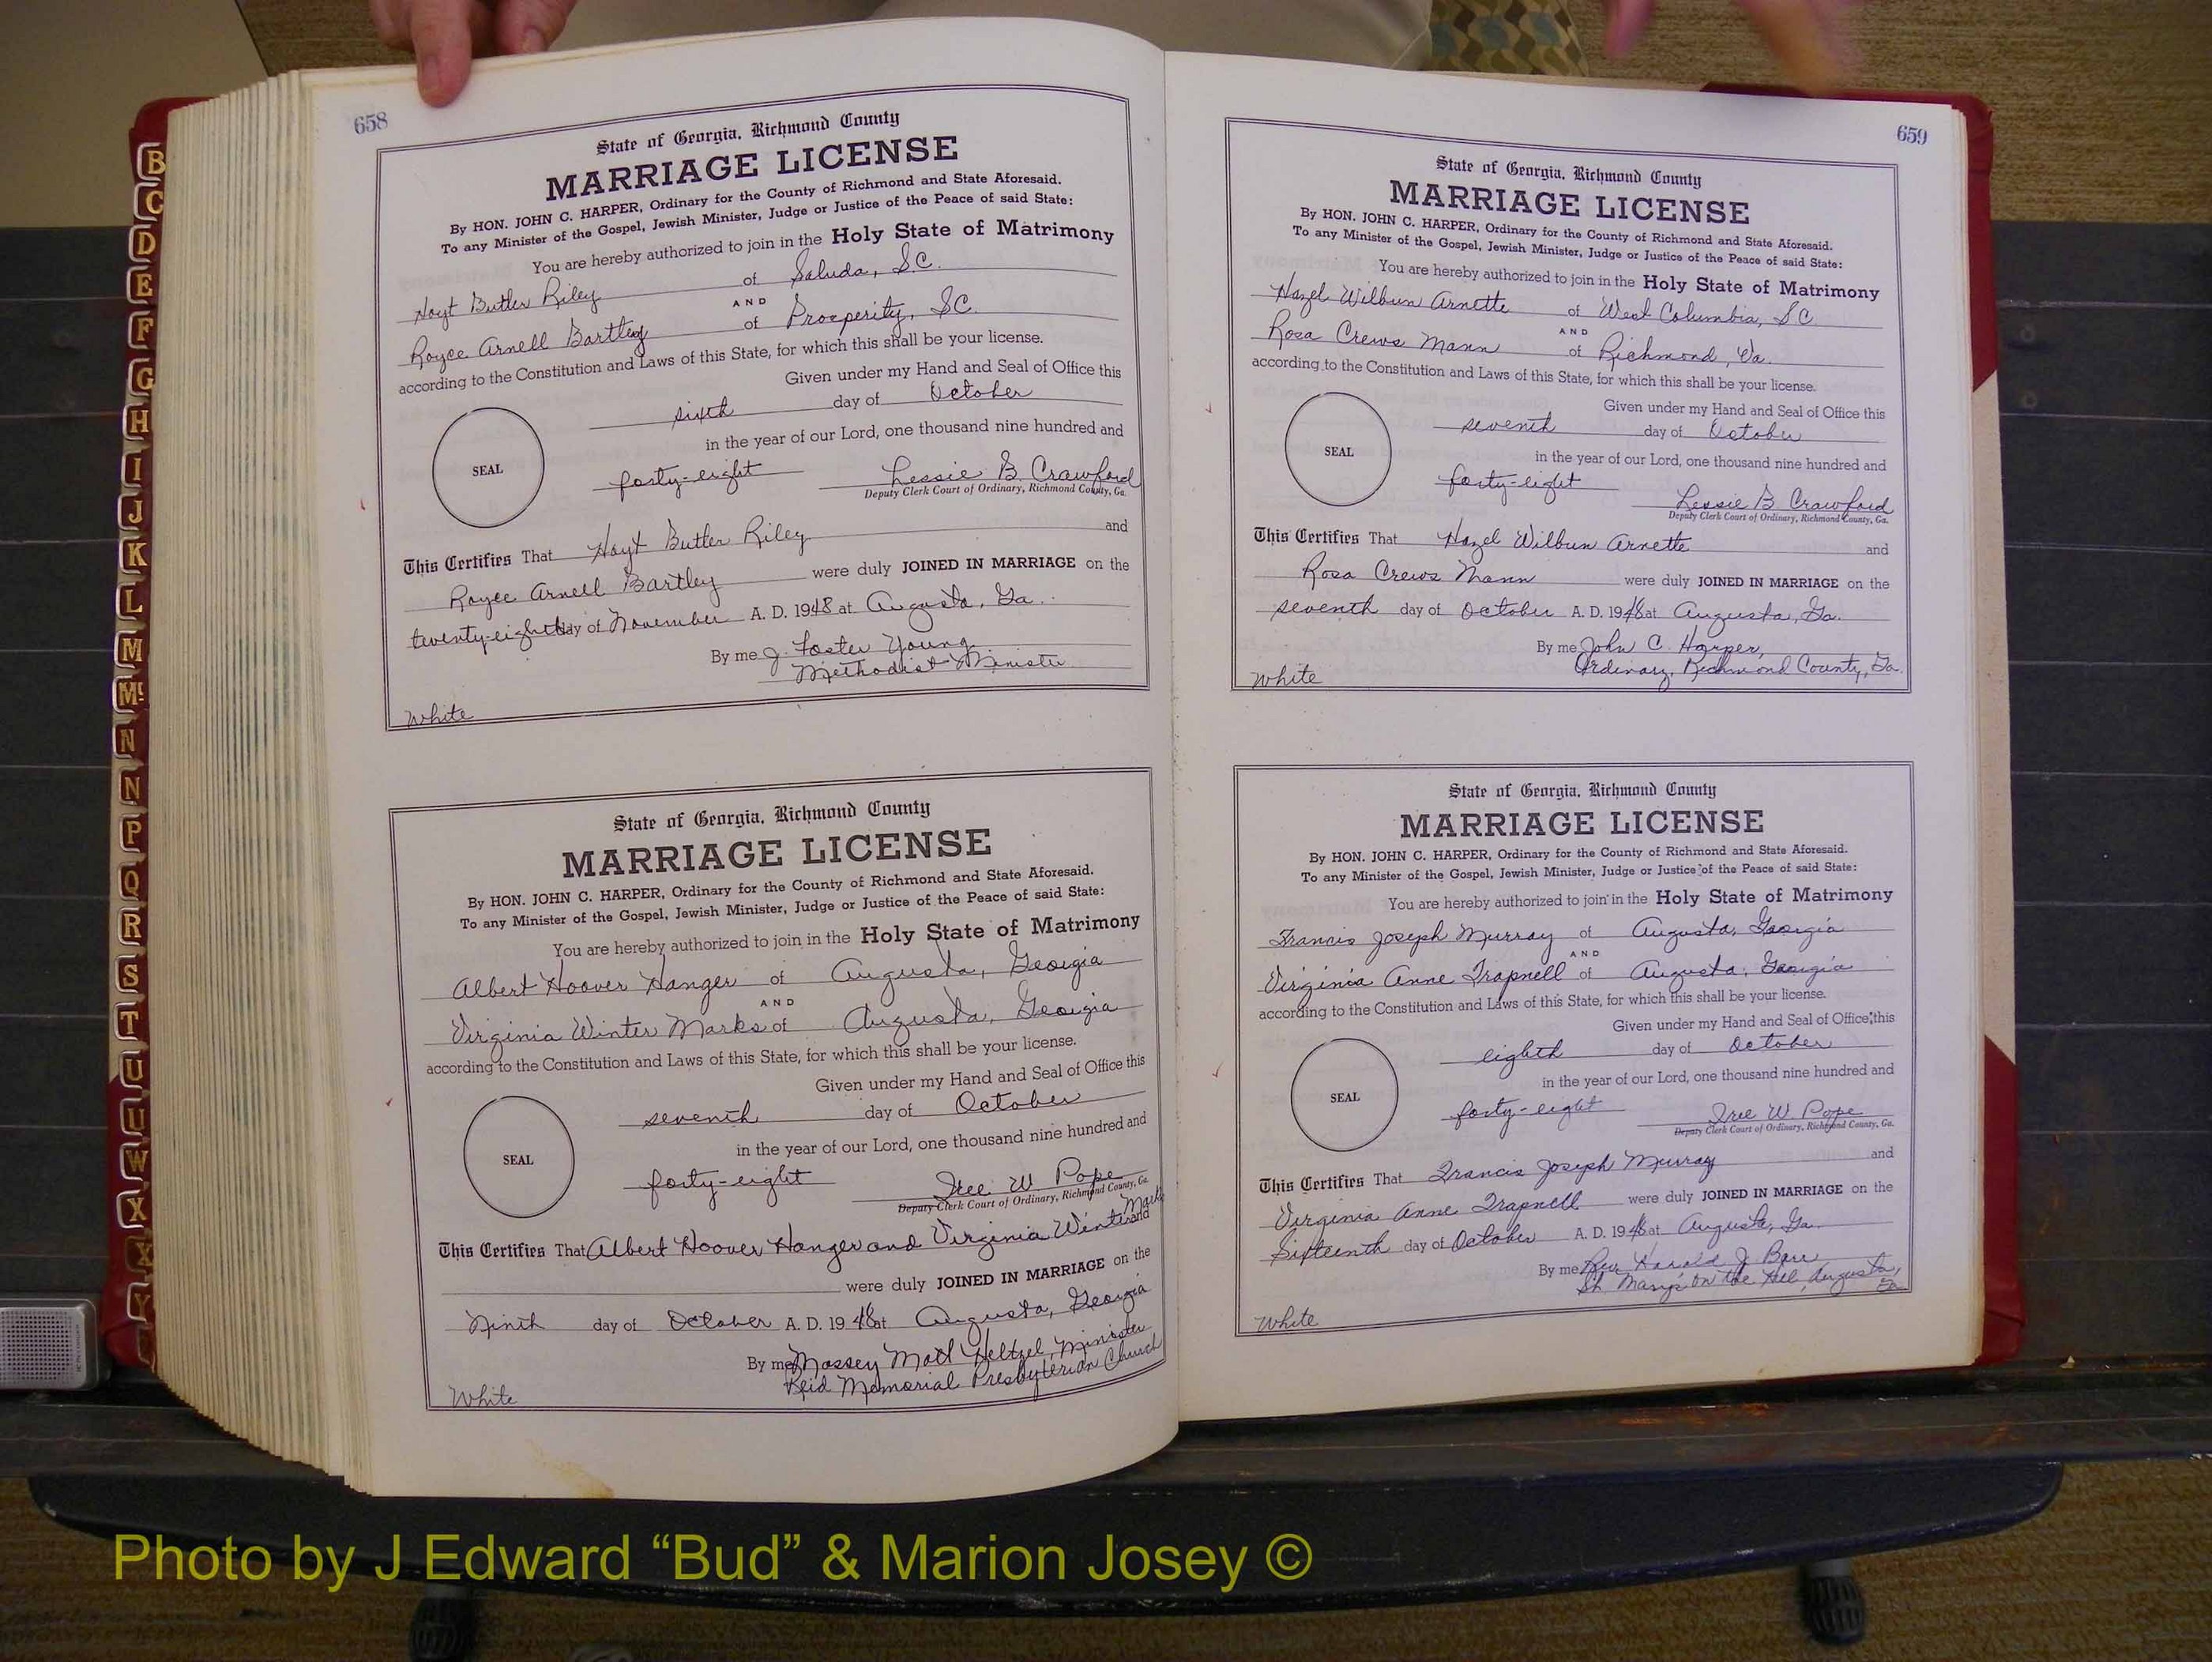 658
State of Georgia, Richmond County
MARRIAGE LICENSE
By HON. JOHN C. HARPER, Ordinary for the County of Richmond and State Aforesaid.
To any Minister of the Gospel, Jewish Minister, Judge or Justice of the Peace of said State:
You are hereby authorized to join in the Holy State of Matrimony
Hoyt Butler Riley of Saluda, S.C.
AND
Royce Arnell Bartley of Prosperity, SC.
according to the Constitution and Laws of this State, for which this shall be your license.
Given under my Hand and Seal of Office this
sixth day of October
in the year of our Lord, one thousand nine hundred and
SEAL
forty-eight Lessie B. Crawford
Deputy Clerk Court of Ordinary, Richmond County, Ga.
This Certifies That Hoyt Butler Riley and
Royce Arnell Bartley were duly JOINED IN MARRIAGE on the
twenty-eighth day of November A. D. 1948 at Augusta, Ga.
By me J. Foster Young
Methodist Minister
White
State of Georgia, Richmond County
MARRIAGE LICENSE
By HON. JOHN C. HARPER, Ordinary for the County of Richmond and State Aforesaid.
To any Minister of the Gospel, Jewish Minister, Judge or Justice of the Peace of said State:
You are hereby authorized to join in the Holy State of Matrimony
Albert Hoover Hanger of Augusta, Georgia
AND
Virginia Winter Marks of Augusta, Georgia
according to the Constitution and Laws of this State, for which this shall be your license.
Given under my Hand and Seal of Office this
seventh day of October
in the year of our Lord, one thousand nine hundred and
SEAL
forty-eight W. Pope
Deputy Clerk Court of Ordinary, Richmond County, Ga.
This Certifies That Albert Hoover Hanger and Virginia Winter Marks and
were duly JOINED IN MARRIAGE on the
Ninth day of October A. D. 1948 at Augusta, Georgia
By me Massey Mott Heltzel, Minister
Reid Memorial Presbyterian Church
White
659
State of Georgia, Richmond County
MARRIAGE LICENSE
By HON. JOHN C. HARPER, Ordinary for the County of Richmond and State Aforesaid.
To any Minister of the Gospel, Jewish Minister, Judge or Justice of the Peace of said State:
You are hereby authorized to join in the Holy State of Matrimony
Hazel Wilbun Arnette of West Columbia, SC
AND
Rosa Crews Mann of Richmond, Va.
according to the Constitution and Laws of this State, for which this shall be your license.
Given under my Hand and Seal of Office this
seventh day of October
in the year of our Lord, one thousand nine hundred and
SEAL
forty-eight Lessie B Crawford
Deputy Clerk Court of Ordinary, Richmond County, Ga.
This Certifies That Hazel Wilbun Arnette and
Rosa Crews Mann were duly JOINED IN MARRIAGE on the
seventh day of October A. D. 1948 at Augusta, Ga.
By me John C. Harper,
Ordinary, Richmond County, Ga.
White
State of Georgia, Richmond County
MARRIAGE LICENSE
By HON. JOHN C. HARPER, Ordinary for the County of Richmond and State Aforesaid.
To any Minister of the Gospel, Jewish Minister, Judge or Justice of the Peace of said State:
You are hereby authorized to join in the Holy State of Matrimony
Francis Joseph Murray of Augusta, Georgia
AND
Virginia Anne Trapnell of Augusta, Georgia
according to the Constitution and Laws of this State, for which this shall be your license.
Given under my Hand and Seal of Office this
eighth day of October
in the year of our Lord, one thousand nine hundred and
SEAL
forty-eight W. Pope
Deputy Clerk Court of Ordinary, Richmond County, Ga.
This Certifies That Francis Joseph Murray and
Virginia Anne Trapnell were duly JOINED IN MARRIAGE on the
Sixteenth day of October A. D. 1948 at Augusta, Ga.
By me Rev Harold J Barr
St. Mary's on the Hill, Augusta, Ga
White
B
C
D
E
F
G
H
I
J
K
L
M
Mc
N
N
P
Q
R
S
T
U
U
W
X
X
Y
Photo by J Edward “Bud” & Marion Josey ©